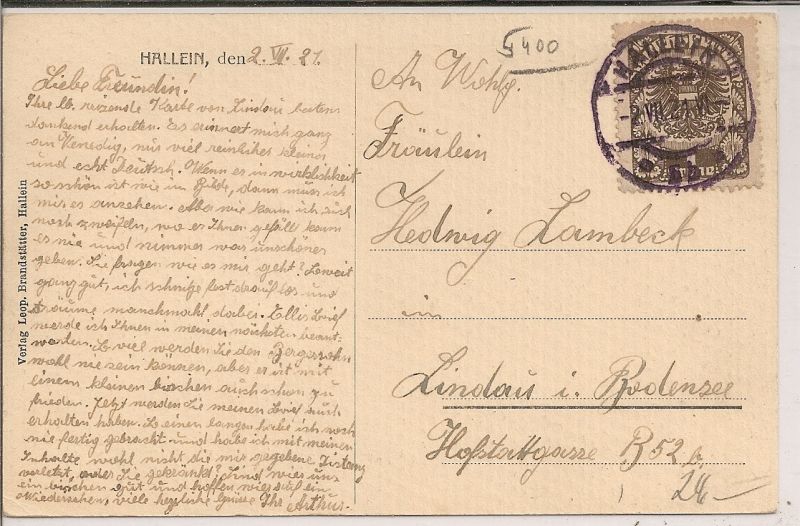 HALLEIN, den 2. VII. 21.
Liebe Freundin!
Ihre lb. reizende Karte von Lindau bestens
dankend erhalten. Es erinnert mich ganz
an Venedig, nur viel reinlicher kleiner
und echt Deutsch. Wenn es in wirklichkeit
so schön ist wie im Bilde, dann muss ich
mir es ansehen. Aber wie kann ich auch
noch zweifeln, wo es Ihnen gefällt kann
es nie und nimmer was unschönes
geben. Sie fragen wie es mir geht? Soweit
ganz gut, ich schnitze fest drauf los und
träume manchmahl dabei. Ellis Brief
werde ich Ihnen in meinem nächsten beant-
worten. So viel werden Sie den Bergssohn
wohl nie sein können, aber er ist mit
einem kleinen bischen auch schon zu
frieden. Jetzt werden Sie meinen Brief auch
erhalten haben. So einen langen habe ich noch
nie fertig gebracht und habe ich mit meinen
Inhalte wohl nicht die mir gegebene
verletzt, oder Sie gekränkt? Sind wir uns
ein bischen gut und hoffen wir auf ein
Wiedersehen, viele herzliche Grüsse Ihr Arthur.
Verlag Leop. Brandstätter, Hallein
5400
An Wohlg.
Fräulein
Hedwig Lambeck
in
Lindau i. Bodensee
Hofstattgasse B 52
24—
HALLEIN
2. VII. 21
1